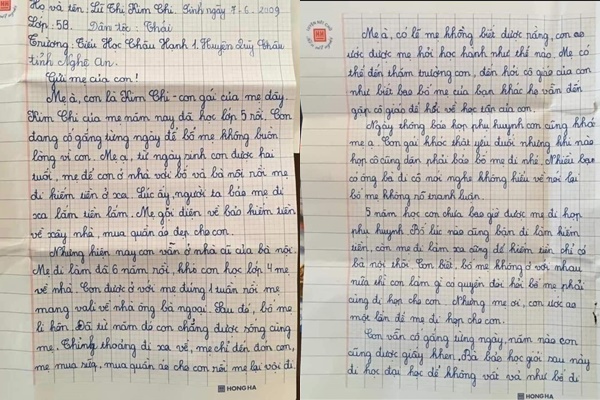 Họ và tên: Lữ Thị Kim Chi. Sinh ngày 7. 6. 2009
Lớp: 5B. Dân tộc: Thái
Trường: Tiểu Học Châu Hạnh 1, Huyện Quỳ Châu
tỉnh Nghệ An.
Gửi mẹ của con!
Mẹ à, con là Kim Chi - con gái của mẹ đây
Kim Chi của mẹ năm nay đã học lớp 5 rồi. Con
đang cố gắng từng ngày để bố mẹ không buồn
lòng vì con. Mẹ ạ, từ ngày sinh con được hai
tuổi, mẹ để con ở nhà với bố và bà nội rồi mẹ
đi kiếm tiền ở xa. Lúc ấy, người ta bảo mẹ đi
xa lắm tiền lắm. Mẹ gọi điện về bảo kiếm tiền
về xây nhà, mua quần áo đẹp cho con.
Nhưng hiện nay con vẫn ở nhà gỗ của bà nội.
Mẹ đi làm đã 6 năm rồi, khi con học lớp 4 mẹ
về nhà. Con được ở với mẹ đúng 1 tuần rồi mẹ
mang vali về nhà ông bà ngoại. Sau đó, bố mẹ
li hôn. Đã từ năm đó con chẳng được sống cùng
mẹ. Thỉnh thoảng đi xa về, mẹ chỉ đến đón con,
mẹ mua sữa, mua quần áo cho con rồi mẹ lại vội đi
HONG HA
Mẹ à, có lẽ mẹ không biết được rằng, con ao
ước được mẹ hỏi học hành như thế nào. Mẹ có
thể đến thăm trường con, đến hỏi cô giáo của con
như biết bao bố mẹ của bạn khác họ vẫn đến
gặp cô giáo để hỏi về học tập của con.
Ngày thông báo họp phụ huynh con cũng khóc
mẹ ạ. Con gái khóc thật yếu đuối nhưng khi nào
họp cô cũng dặn phải bảo bố mẹ đi nhé. Nhiều bạn
có ông bà đi cô nói nghe không hiểu về nói lại
bố mẹ không rõ tranh luận.
5 năm học con chưa bao giờ được mẹ đi họp
phụ huynh. Bố lúc nào cũng bận đi làm kiếm
tiền, còn mẹ đi làm xa cũng để kiếm tiền chỉ có
bà nội thôi. Con biết, bố mẹ không ở với nhau
nữa thì con làm gì có quyền đòi hỏi bố mẹ phải
cùng đi họp cho con. Nhưng mẹ ơi, con ước ao
một lần để mẹ đi họp cho con.
Con vẫn cố gắng từng ngày, năm nào con
cũng được giấy khen. Bà bảo học giỏi sau này
đi học đại học để không vất vả như bố đi
HONG HA